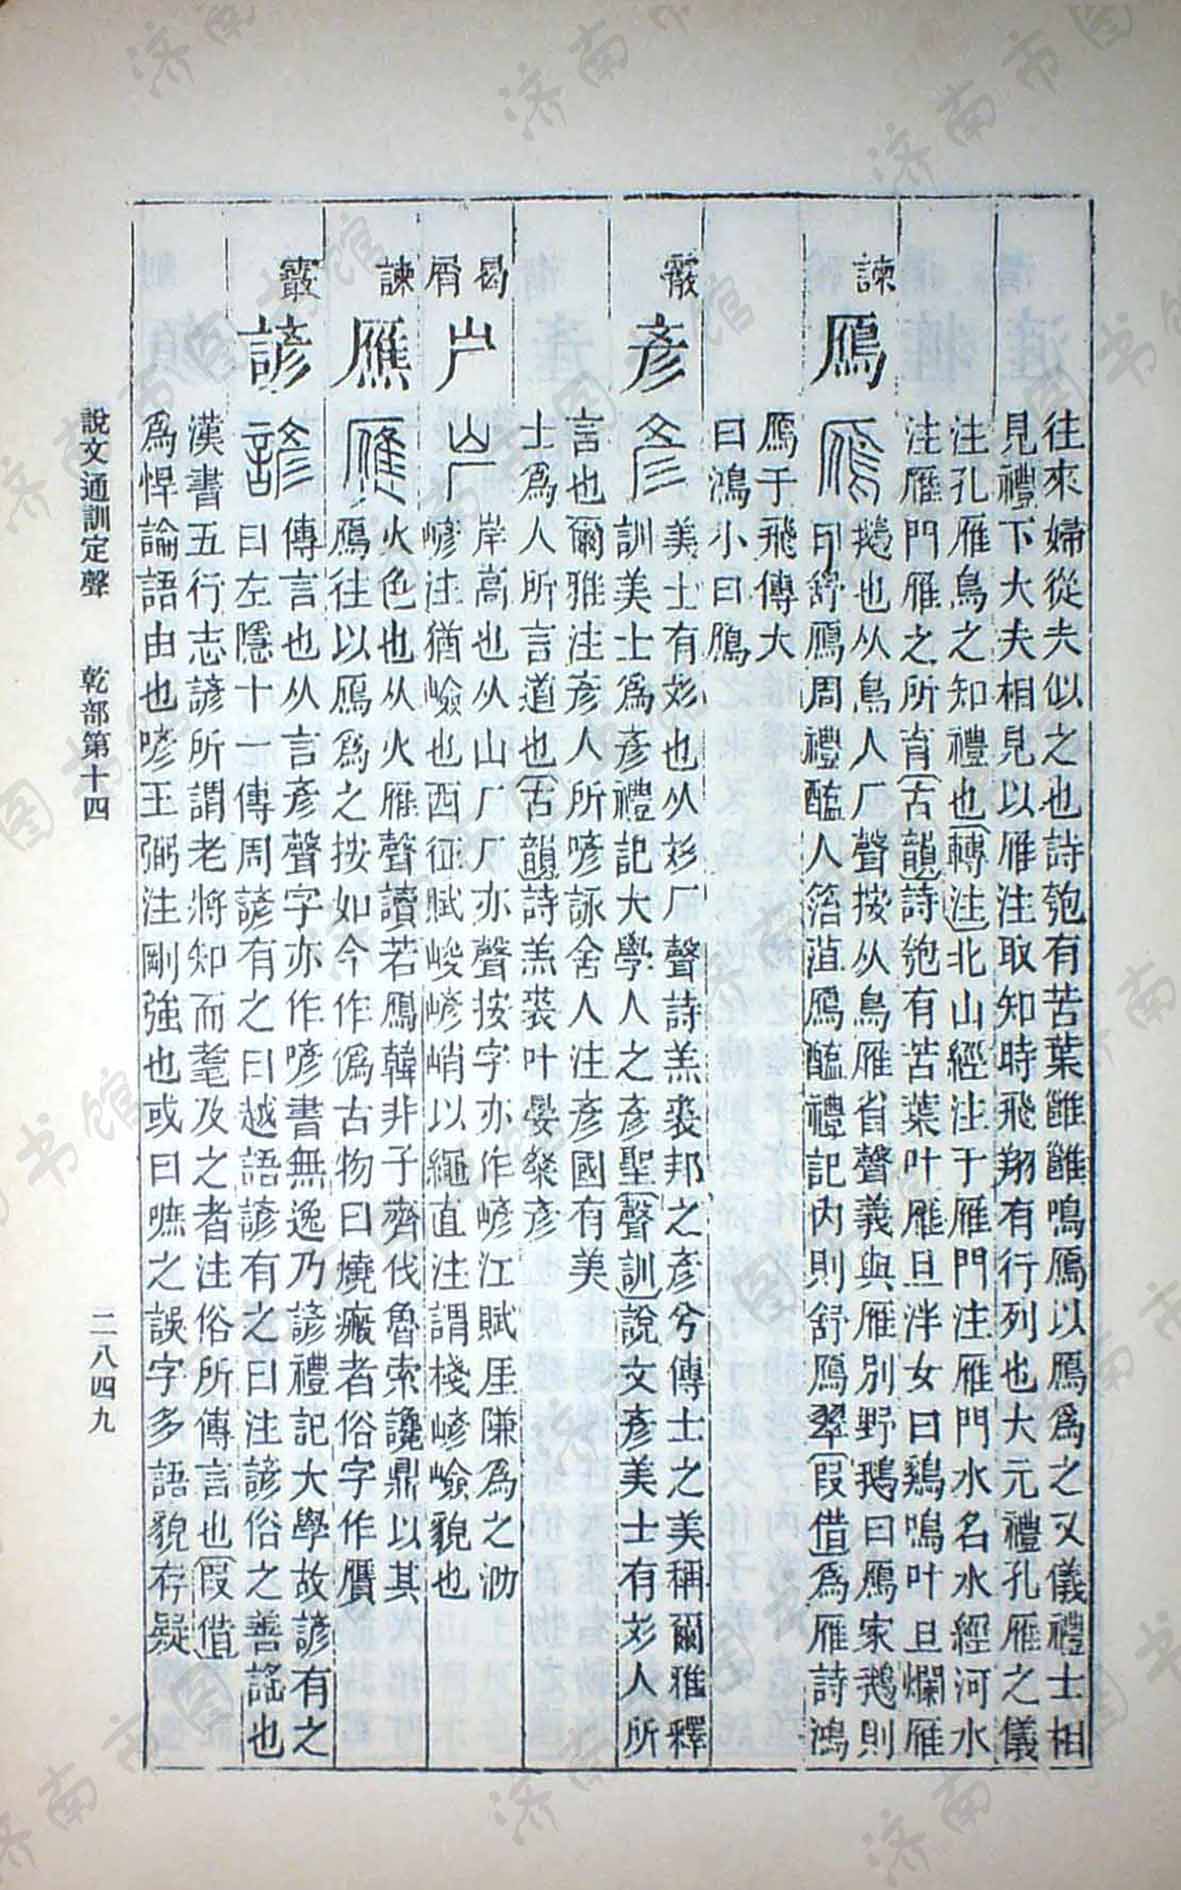 往來婦從夫似之也詩匏有苦葉雝雝鳴鴈以鴈爲之又儀禮士相
見禮下大夫相見以雁注取知時飛翔有行列也大元禮孔雁之儀
注孔雁鳥之知禮也轉注北山經注于雁門注雁門水名水經河水
注雁門雁之所育古韻詩匏有苦葉叶雁旦泮女曰雞鳴叶旦爛雁
諫
鴈
䳘也从鳥人厂聲按从鳥雁省聲義與雁別野鵝曰鴈家鵝則
曰舒鴈周禮醢人箈菹鴈醢禮記內則舒鴈翠叚借爲雁詩鴻
鴈于飛傳大
曰鴻小曰鴈
霰
彥
美士有彣也从彣厂聲詩羔裘邦之彥兮傳士之美稱爾雅釋
訓美士爲彥禮記大學人之彥聖聲訓說文彥美士有彣人所
言也爾雅注彥人所喭詠舍人注彥國有美
士爲人所言道也古韻詩羔裘叶晏粲彥
曷
屑
屵
岸高也从山厂厂亦聲按字亦作嵃江賦厓隒爲之泐
嵃注猶嶮也西征賦峻嵃峭以繩直注謂棧嵃嶮貌也
諫
㷼
火色也从火雁聲讀若鴈韓非子齊伐魯索讒鼎以其
鴈往以鴈爲之按如今作僞古物曰燒瘢者俗字作贋
霰
諺
傳言也从言彥聲字亦作喭書無逸乃諺禮記大學故諺有之
曰左隱十一傳周諺有之曰越語諺有之曰注諺俗之善謠也
漢書五行志諺所謂老將知而耄及之者注俗所傳言也叚借
爲悍論語由也喭王弼注剛強也或曰嗻之誤字多語貌存疑
說文通訓定聲 乾部第十四 二八四九
濟南市图书馆